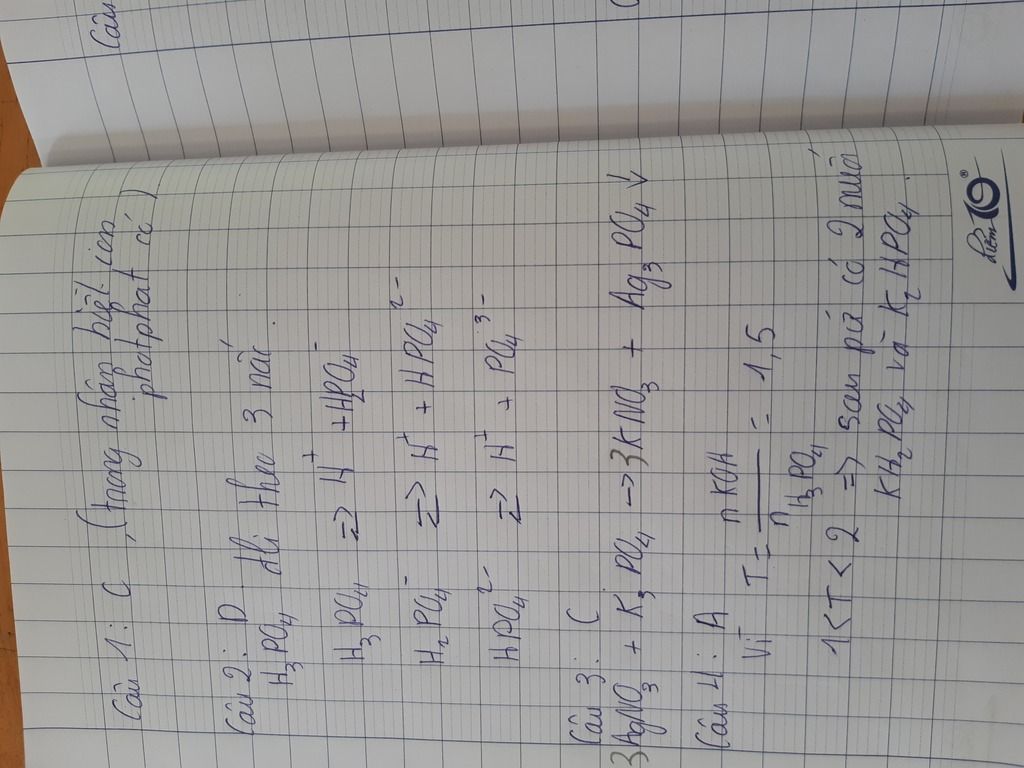 Câu 1 : C , (trong nhận biết ion
photphat có )
Câu 2 : D
H3PO4 đli theo 3 nấc .
H3PO4 ⇌ H+ + H2PO4-
H2PO4- ⇌ H+ + HPO4 2-
HPO4 2- ⇌ H+ + PO4 3-
Câu 3 : C
3AgNO3 + K3PO4 -> 3KNO3 + Ag3PO4 ↓
Câu 4 : A
Vì T = nKOH / nH3PO4 = 1,5
1 < T < 2 => sau pứ có 2 muối
KH2PO4 và K2HPO4 .
Điểm 10 ®
Câu
C